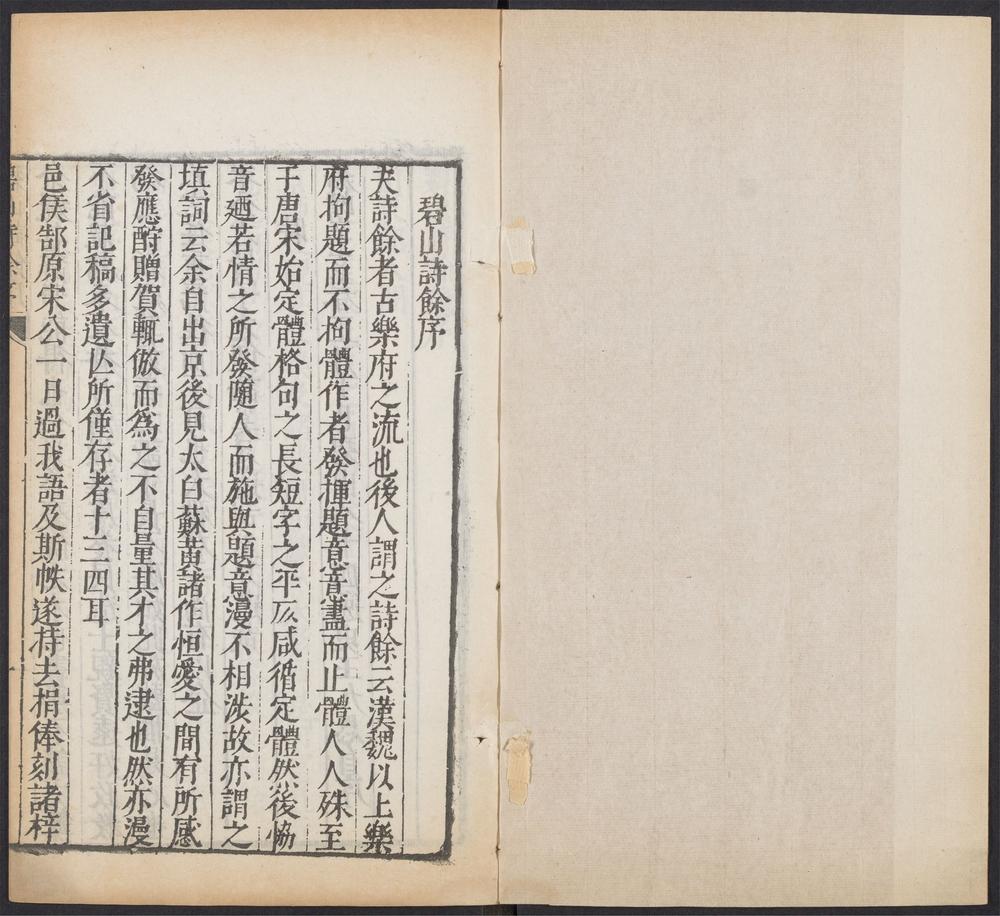 碧山詩餘序
夫詩餘者古樂府之流也後人謂之詩餘云漢魏以上樂
府拘題而不拘體作者發揮題意意盡而止體人人殊至
于唐宋始定體格句之長短字之平仄咸循定體然後恊
音廼若情之所發隨人而施與題意漫不相涉故亦謂之
填詞云余自出京後見太白蘇黃諸作恒愛之間有所感
發應酧贈賀輒倣而為之不自量其才之弗逮也然亦漫
不省記稿多遺亾所僅存者十三四耳
邑侯郜原宋公一日過我語及斯帙遂持去捐俸刻諸梓